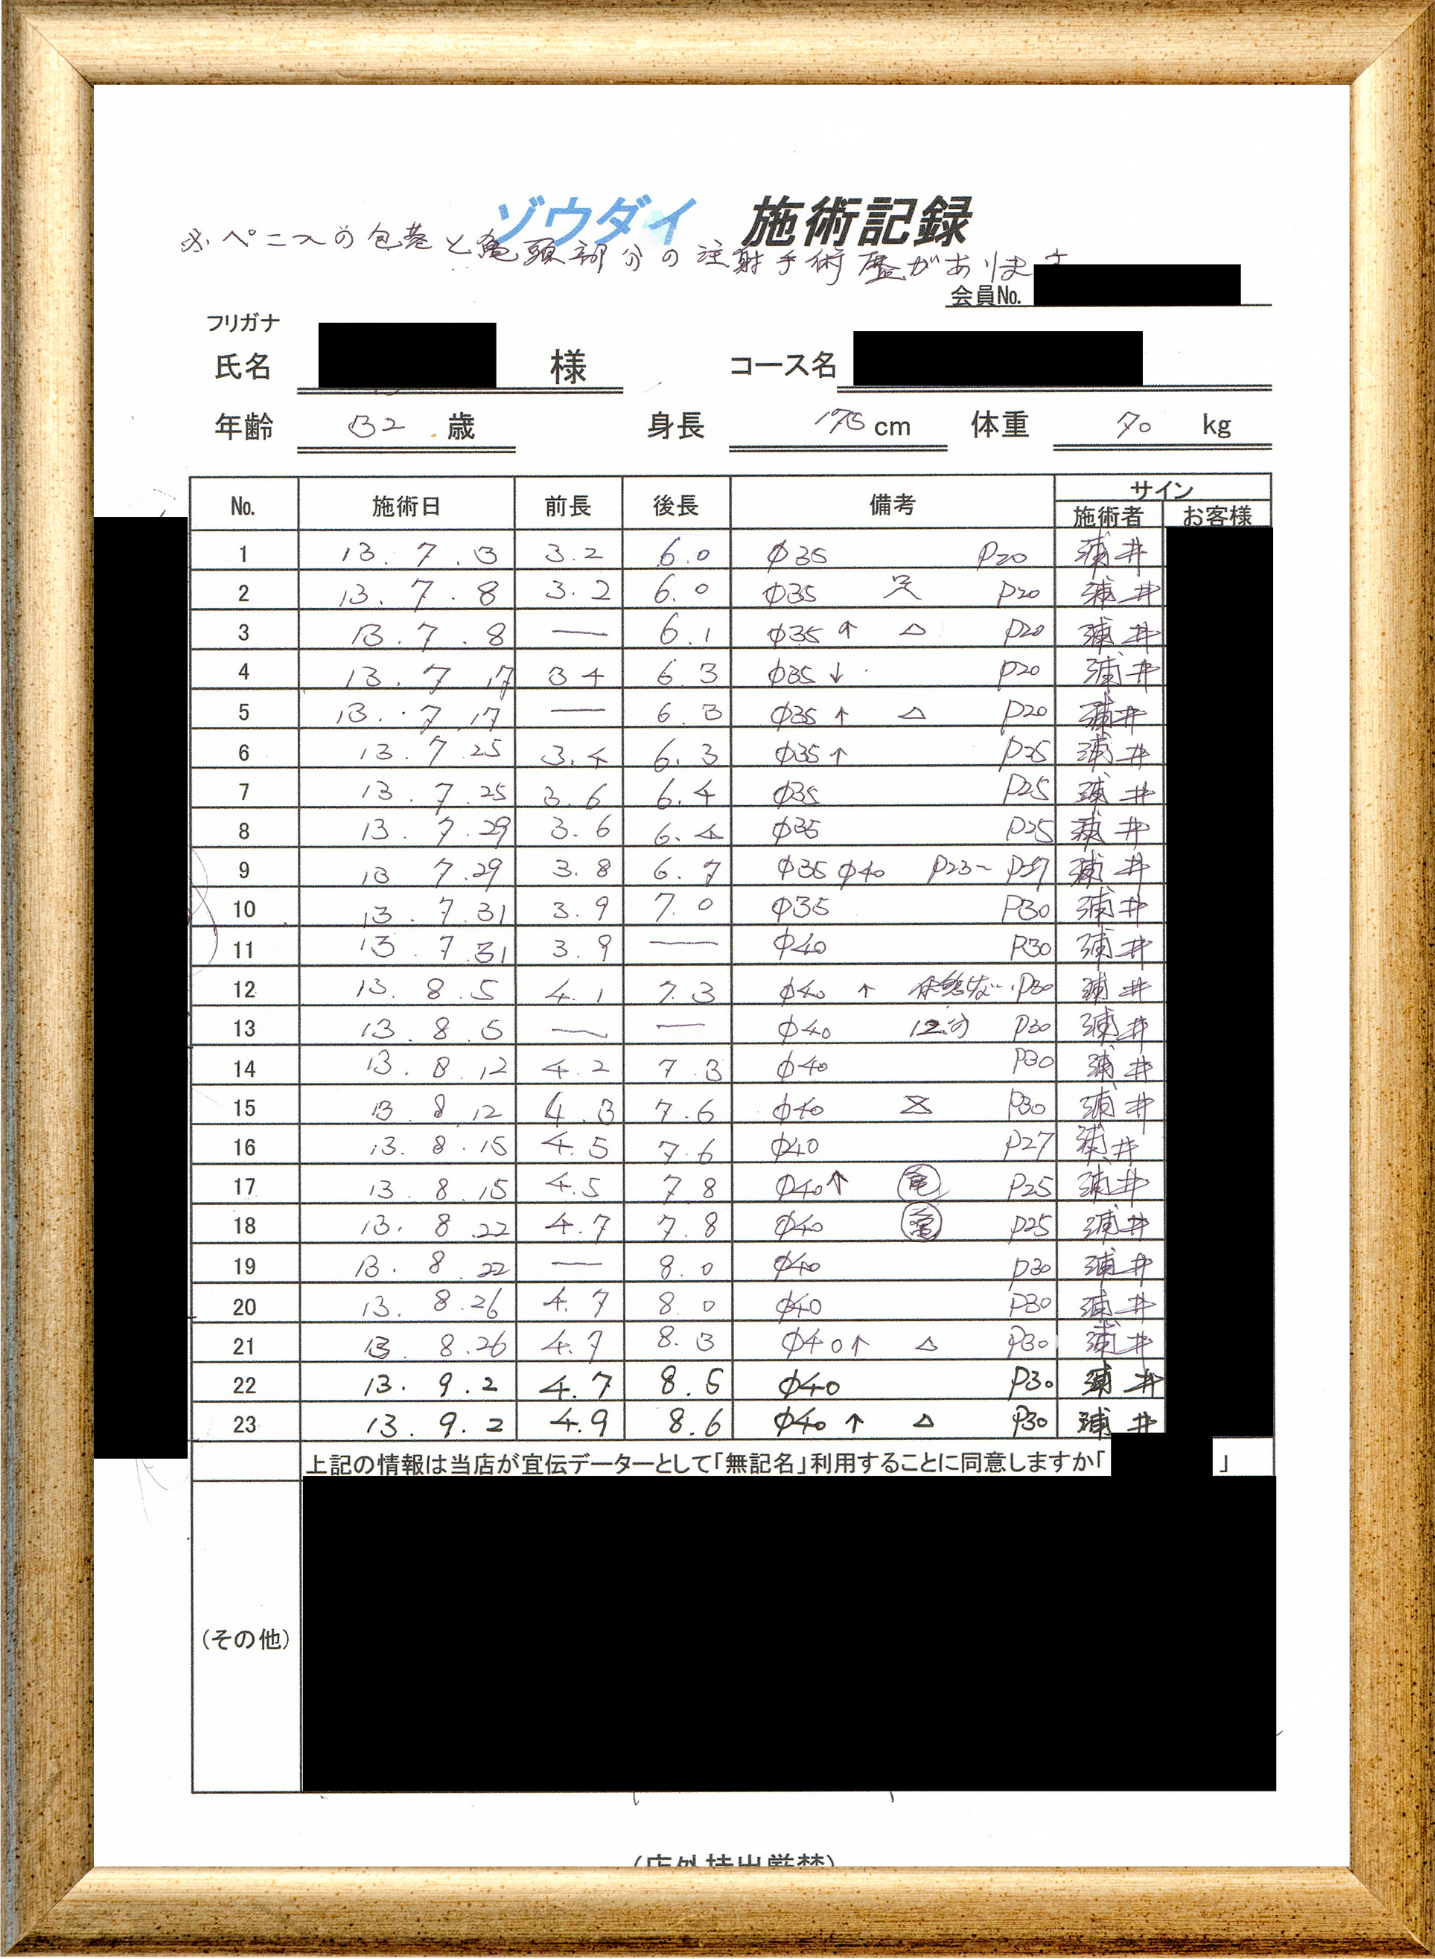 ゾウダイ 施術記録
※ペニスの包茎と亀頭部分の注射手術歴があります
会員No.
フリガナ
氏名 様 コース名
年齢 32 歳 身長 175 cm 体重 70 kg
No. 施術日 前長 後長 備考 サイン
施術者 お客様
1 13.7.3 3.2 6.0 φ35 P20 浦井
2 13.7.8 3.2 6.0 φ35 P20 浦井
3 13.7.8 — 6.1 φ35↑ △ P20 浦井
4 13.7.17 3.4 6.3 φ35↓ P20 浦井
5 13.7.17 — 6.3 φ35↑ △ P20 浦井
6 13.7.25 3.4 6.3 φ35↑ P25 浦井
7 13.7.25 3.6 6.4 φ35 P25 浦井
8 13.7.29 3.6 6.4 φ35 P25 浦井
9 13.7.29 3.8 6.7 φ35 φ40 P23~P27 浦井
10 13.7.31 3.9 7.0 φ35 P30 浦井
11 13.7.31 3.9 — φ40 P30 浦井
12 13.8.5 4.1 7.3 φ40 ↑ P30 浦井
13 13.8.5 — — φ40 12分 P30 浦井
14 13.8.12 4.2 7.3 φ40 P30 浦井
15 13.8.12 4.3 7.6 φ40 P30 浦井
16 13.8.15 4.5 7.6 φ40 P27 浦井
17 13.8.15 4.5 7.8 φ40↑ 亀 P25 浦井
18 13.8.22 4.7 7.8 φ40 亀 P25 浦井
19 13.8.22 — 8.0 φ40 P30 浦井
20 13.8.26 4.7 8.0 φ40 P30 浦井
21 13.8.26 4.7 8.3 φ40↑ △ P30 浦井
22 13.9.2 4.7 8.5 φ40 P30 浦井
23 13.9.2 4.9 8.6 φ40↑ △ P30 浦井
上記の情報は当店が宣伝データーとして「無記名」利用することに同意しますか「 」
(その他)
(店外持出厳禁)